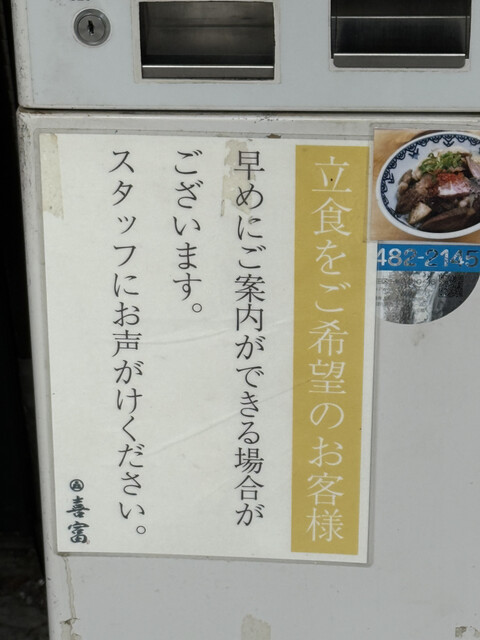 立食をご希望のお客様
早めにご案内ができる場合が
ございます。
スタッフにお声がけください。
喜富
482-2145